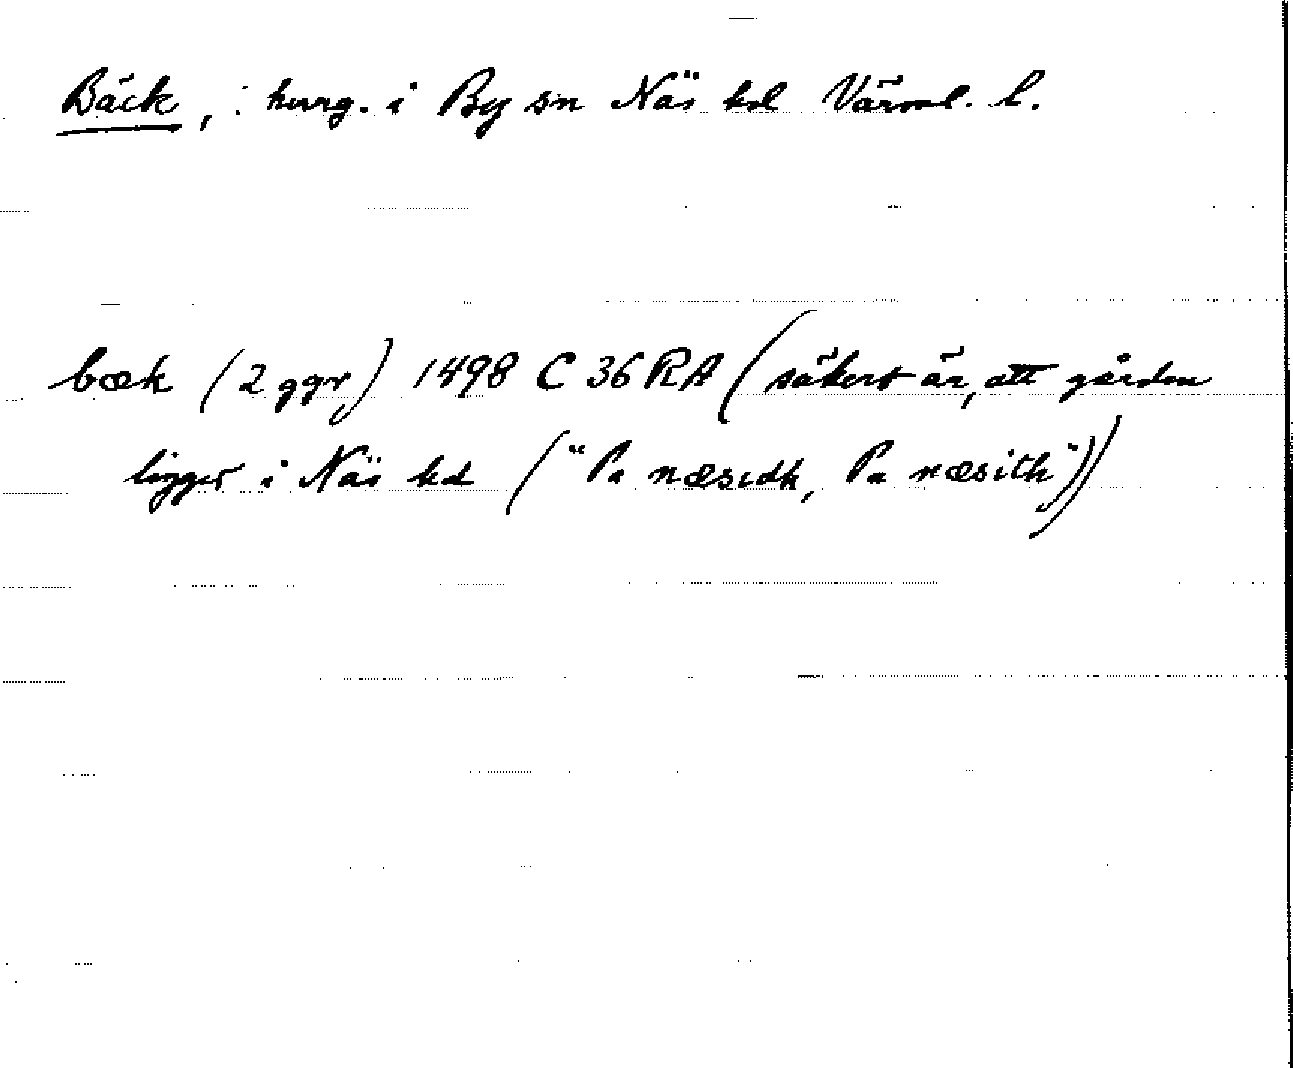 Bäck, : herrg. i By sn Näs hd Värml. l.
bæk (2 ggr) 1498 C 36 RA (säkert är, att gården
ligger i Näs hd ("Pa næsidh, Pa næsith"))